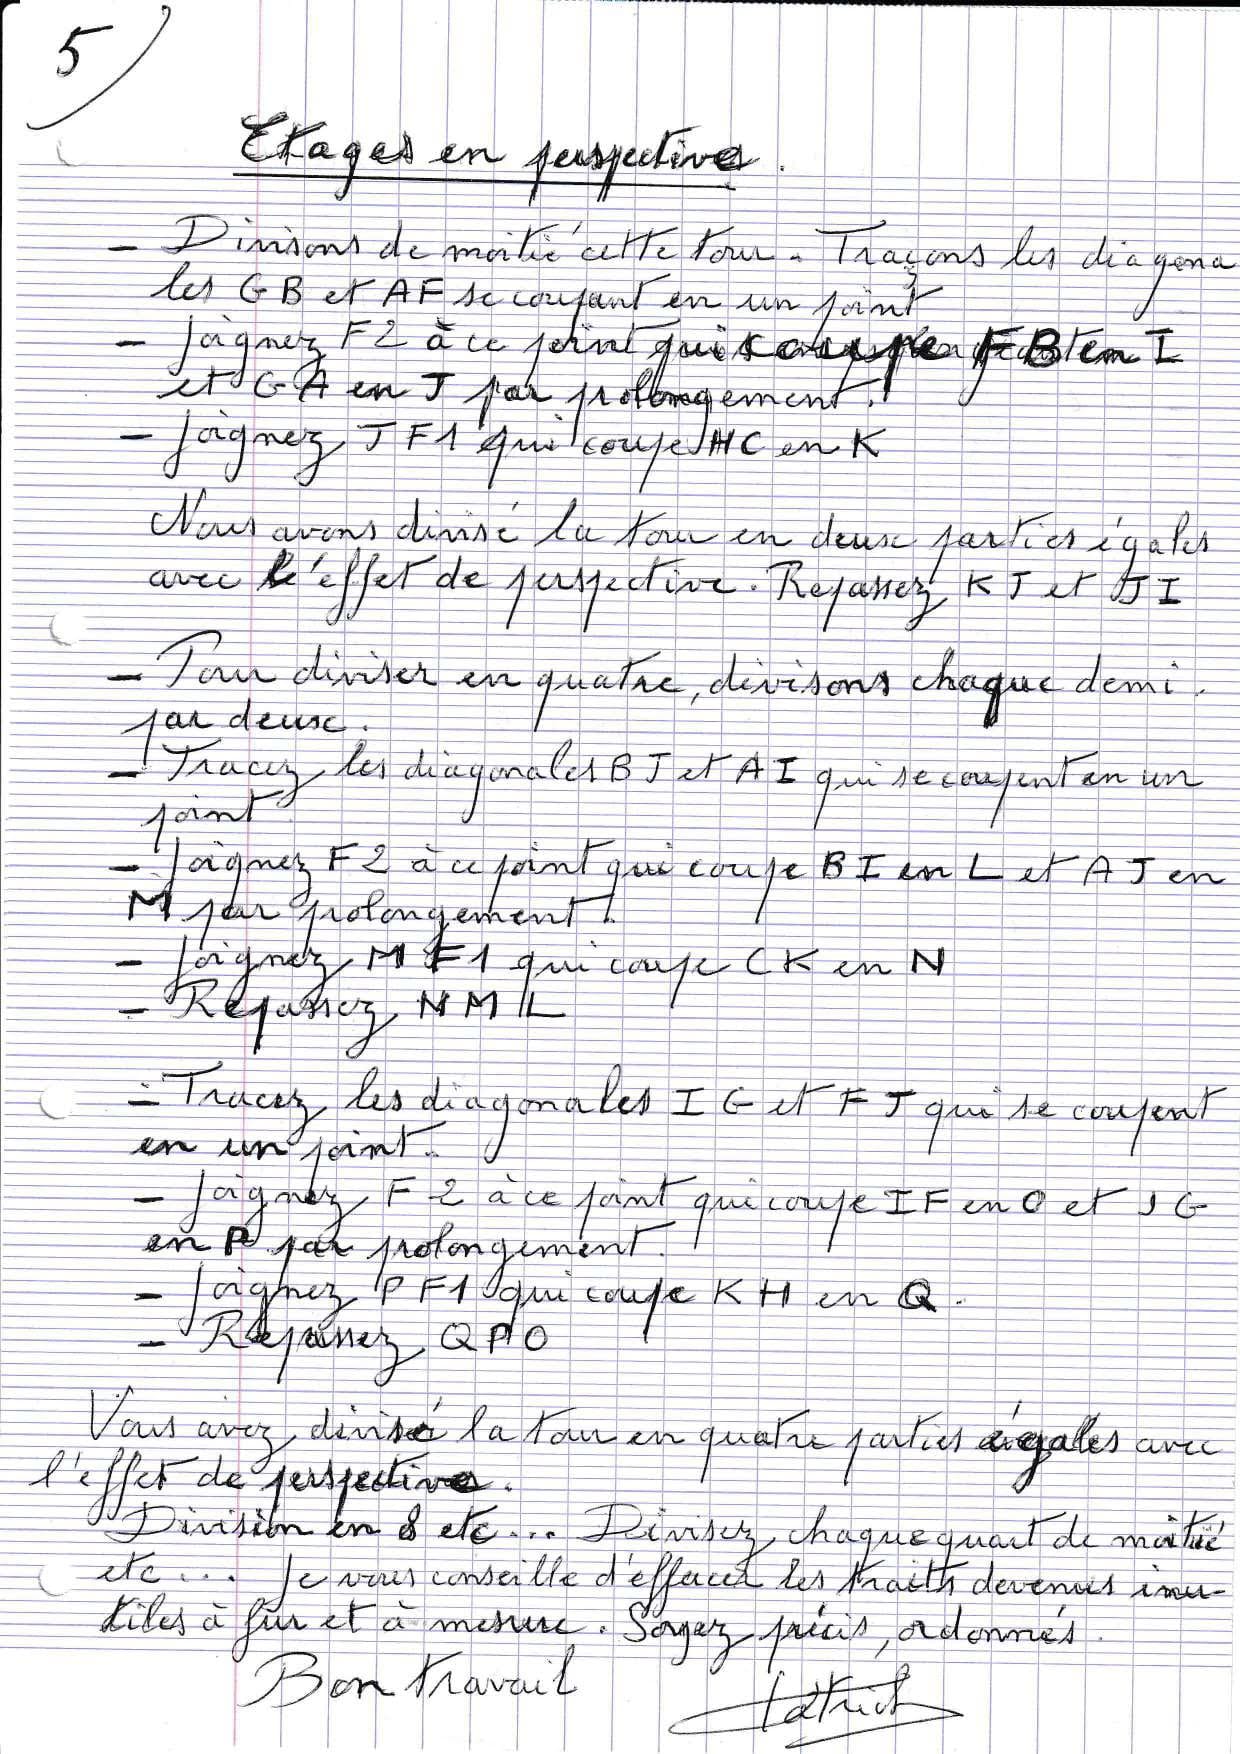 5
Etages en perspective.
- Divisons de moitié cette tour. Traçons les diagona
les GB et AF se coupant en un point
- Joignez F2 à ce point qui coupe FB en I
et GA en J par prolongement.
- Joignez JF1 qui coupe HC en K
Nous avons divisé la tour en deux parties égales
avec l'effet de perspective. Repassez KJ et JI
- Pour diviser en quatre, divisons chaque demi.
par deux.
- Tracez les diagonales BJ et AI qui se coupent en un
point
- Joignez F2 à ce point qui coupe BI en L et AJ en
M par prolongement.
- Joignez MF1 qui coupe CK en N
- Repassez NML
- Tracez les diagonales IG et FJ qui se coupent
en un point.
- Joignez F2 à ce point qui coupe IF en O et JG
en P par prolongement.
- Joignez PF1 qui coupe KH en Q.
- Repassez QPO
Vous avez divisé la tour en quatre parties égales avec
l'effet de perspective.
Division en 8 etc... Divisez chaque quart de moitié
etc... Je vous conseille d'effacer les traits devenus inu-
tiles à fur et à mesure. Soyez précis, ordonnés.
Bon travail
Patrick